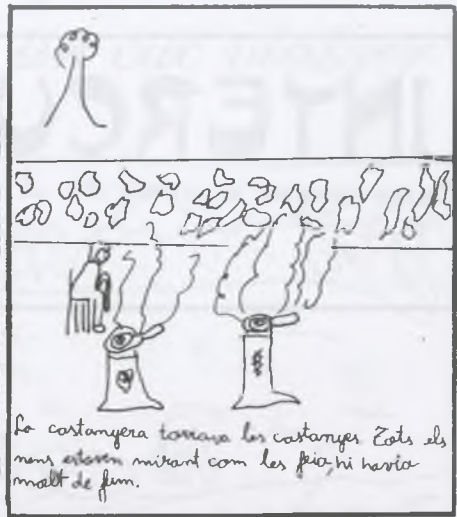 La castanyera torrava les castanyes Tots els
nens estaven mirant com les feia, hi havia
molt de fum.